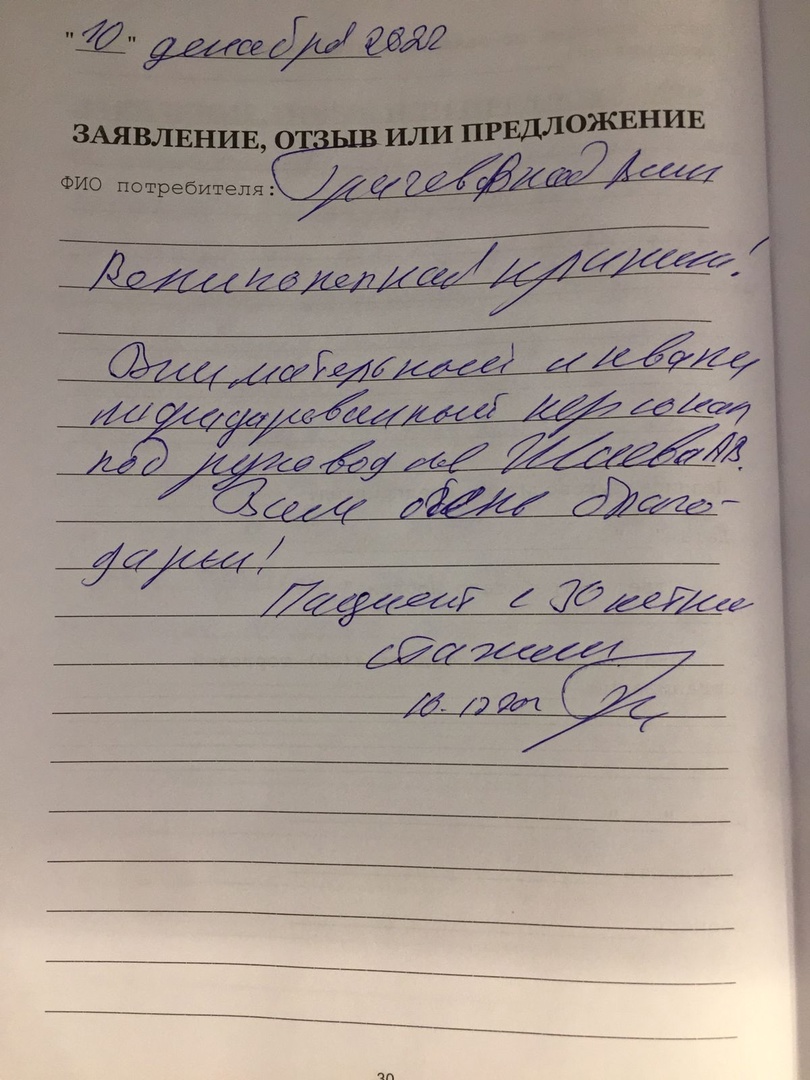 "10" декабря 2022
ЗАЯВЛЕНИЕ, ОТЗЫВ ИЛИ ПРЕДЛОЖЕНИЕ
ФИО потребителя: Влад
Великолепная клиника!
Внимательный и квали
фицированный персонал
под руковод АВ.
Всем очень благо-
дарны!
Пациент с 30 летним
стажем
30